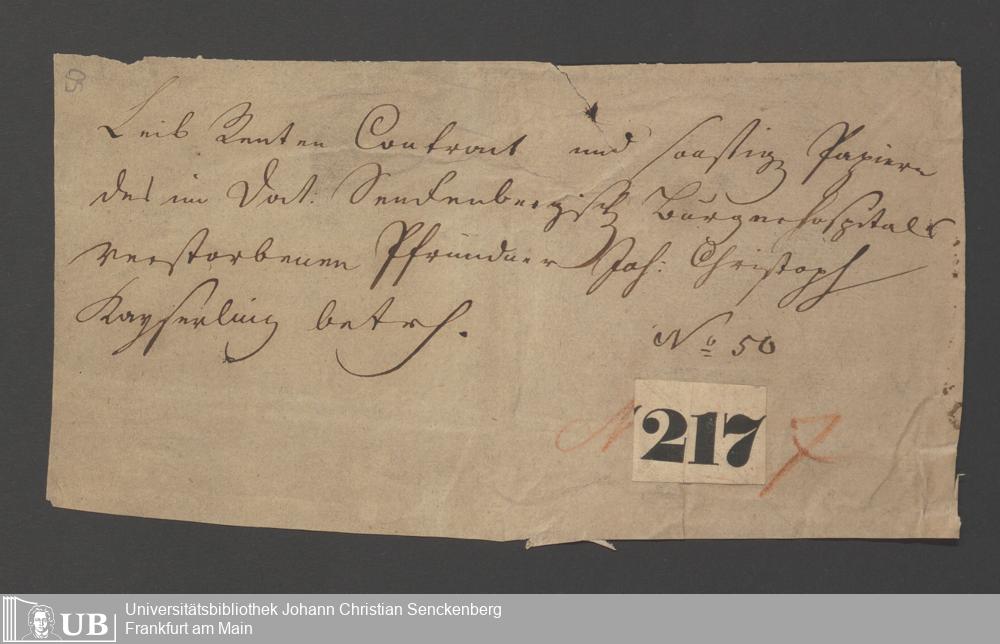 Leib Renten Contract und sonstige Papiere
des im Doct: Senckenbergisch Bürgerhospitals
verstorbenen Pfründner Joh: Christoph
Kayserling betrf.
No 50
N 217 7
UB Universitätsbibliothek Johann Christian Senckenberg
Frankfurt am Main